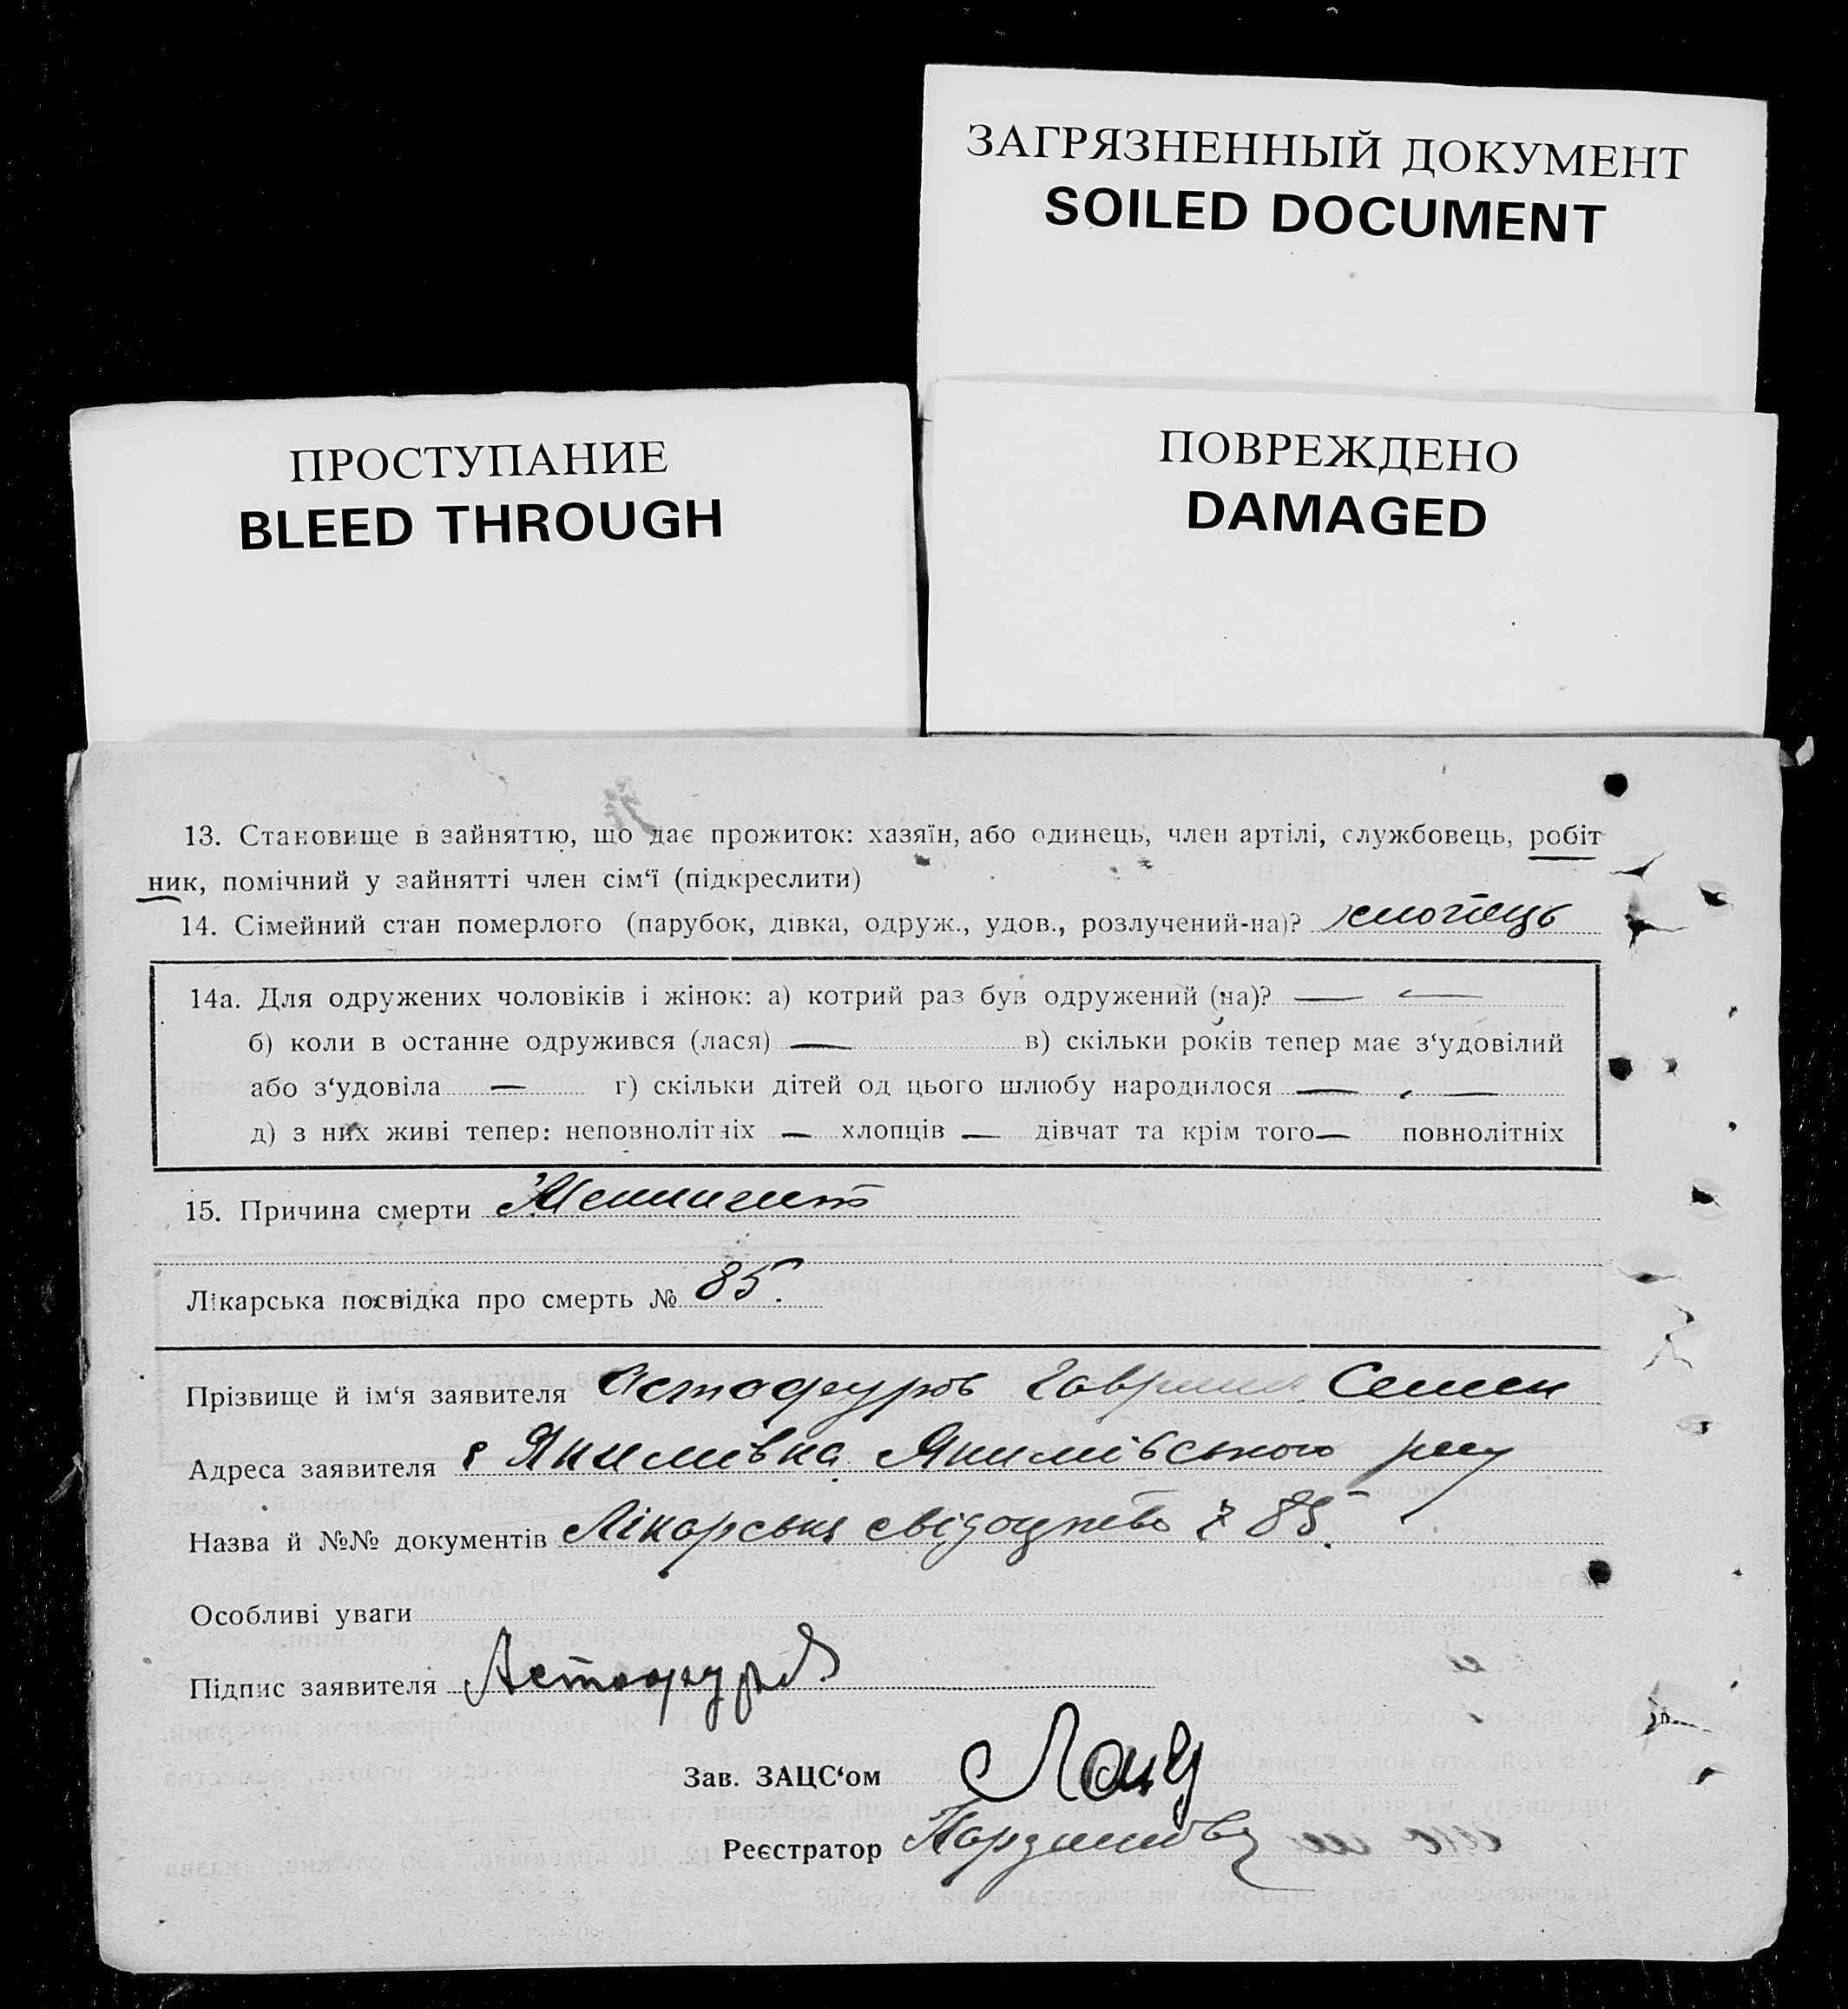 ЗАГРЯЗНЕННЫЙ ДОКУМЕНТ
SOILED DOCUMENT
ПРОСТУПАНИЕ
BLEED THROUGH
ПОВРЕЖДЕНО
DAMAGED
13. Становище в зайняттю, що дає прожиток: хазяїн, або одинець, член артілі, службовець, робіт
ник, помічний у зайнятті член сім‘ї (підкреслити)
14. Сімейний стан померлого (парубок, дівка, одруж., удов., розлучений-на)? хлопець
14а. Для одружених чоловіків і жінок: а) котрий раз був одружений (на)? — —
б) коли в останне одружився (лася) — в) скільки років тепер має з‘удовілий
або з‘удовіла — г) скільки дітей од цього шлюбу народилося — —
д) з них живі тепер: неповнолітніх — хлопців — дівчат та крім того — повнолітніх
15. Причина смерти Менингит
Лікарська посвідка про смерть № 85.
Прізвище й ім‘я заявителя Астафуров Гаврил Семен
Адреса заявителя Якимівка Якимівського
Назва й №№ документів Лікарська свідоцтво 85.
Особливі уваги
Підпис заявителя Астафуров
Зав. ЗАЦС‘ом
Реєстратор